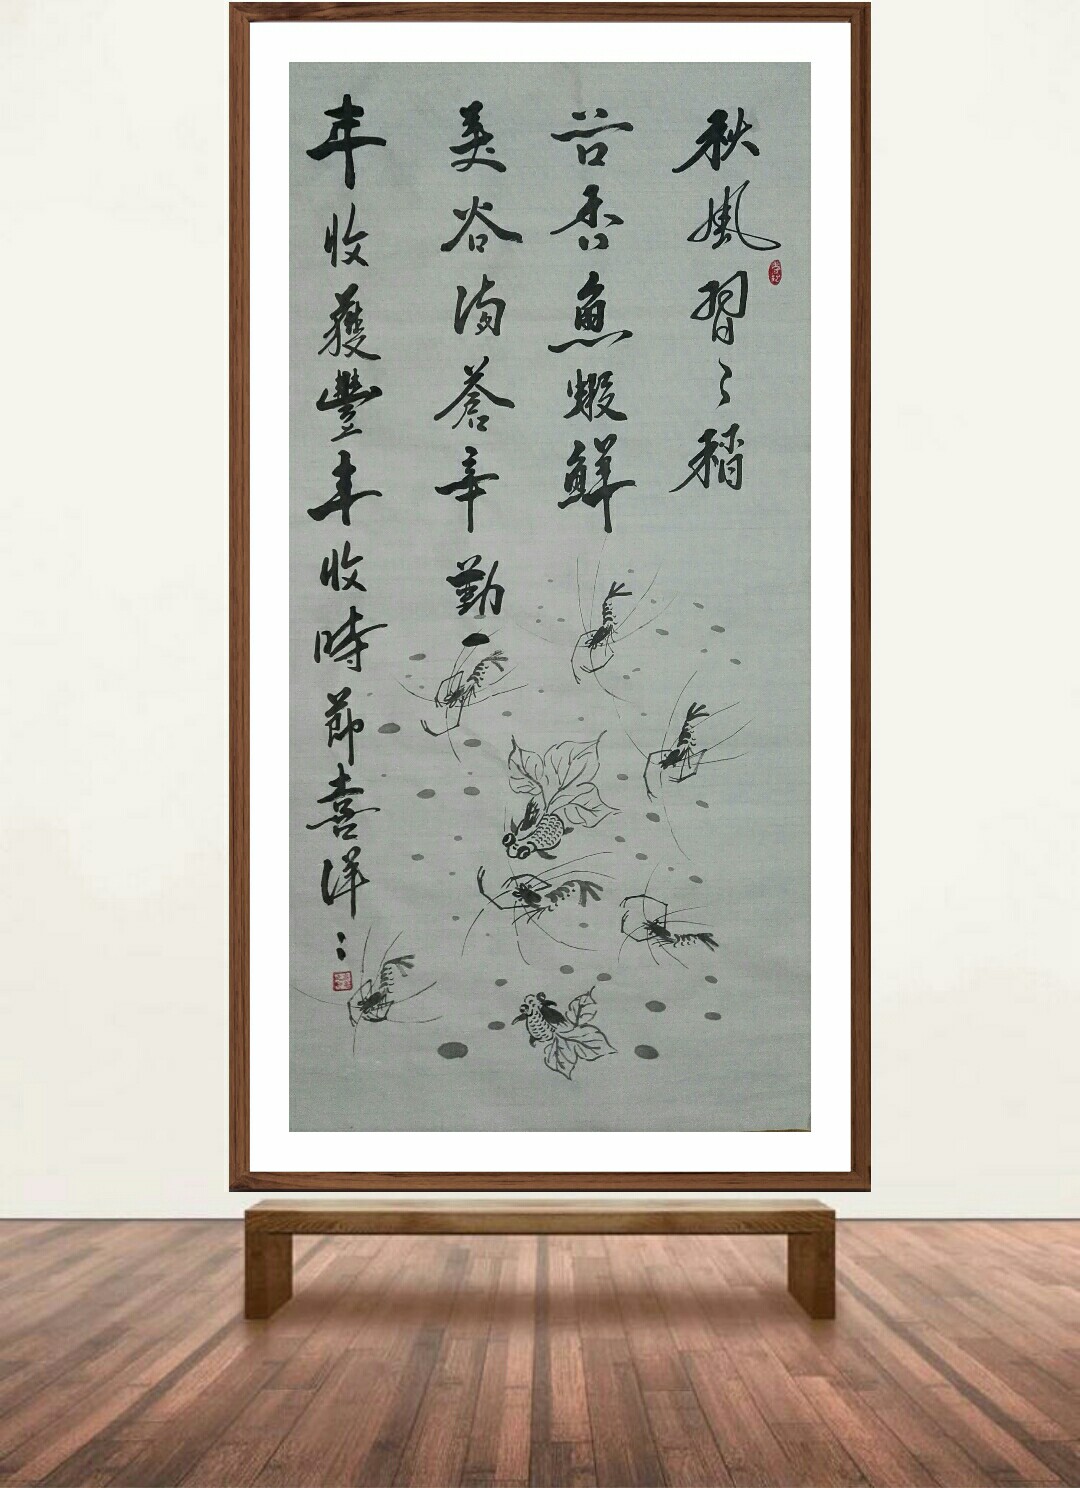 秋風習〻稻
谷香魚蝦鮮
美谷滿蒼辛勤一
年收獲豐丰收時節喜洋〻